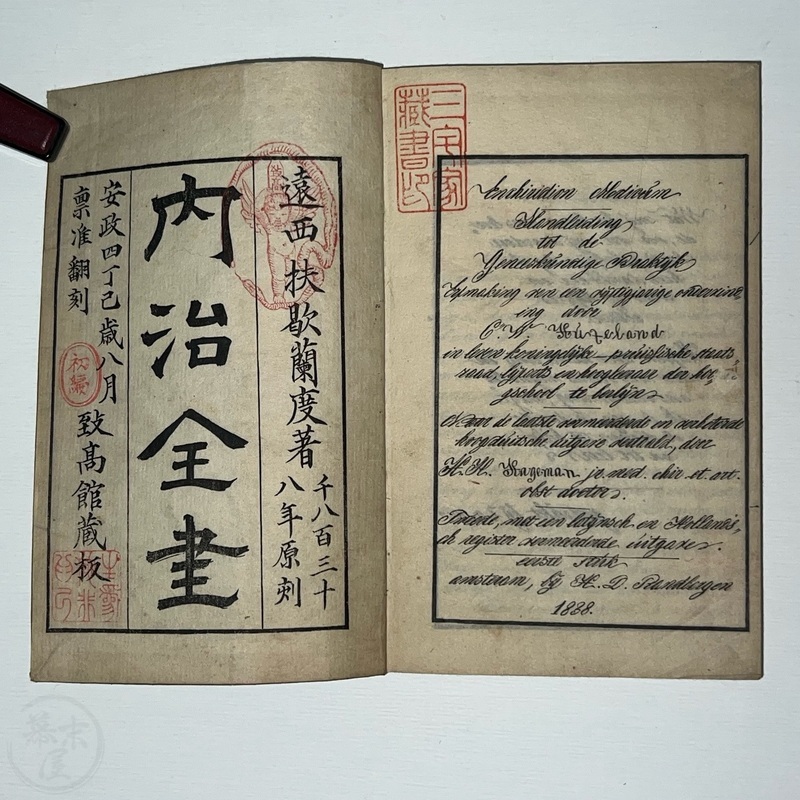 遠西扶歇蘭度著
千八百三十
八年原刻
内治全書
安政四丁巳歳八月
稟准翻刻
致高館蔵板
初編
三宅家
蔵書印
Enchiridion Medicum
Handleiding
tot de
Geneeskundige Praktijk
Erfmaking van een vijftigjarige ondervind
ing door
C. W. Hufeland
in leven koninglijke pruissische staats
raad, lijfarts en hoogleraar der hoo
gschool te berlijn
Naar de laatste vermeerderde en verbeterde
hoogduitsche uitgave vertaald, door
H. H. Hageman jr med. chir et art.
obst doctor.
Tweede, met een latijnsch en Hollands
ch register vermeerderde uitgave.
eerste stuk
amsterdam, bij
1838.
幕末屋